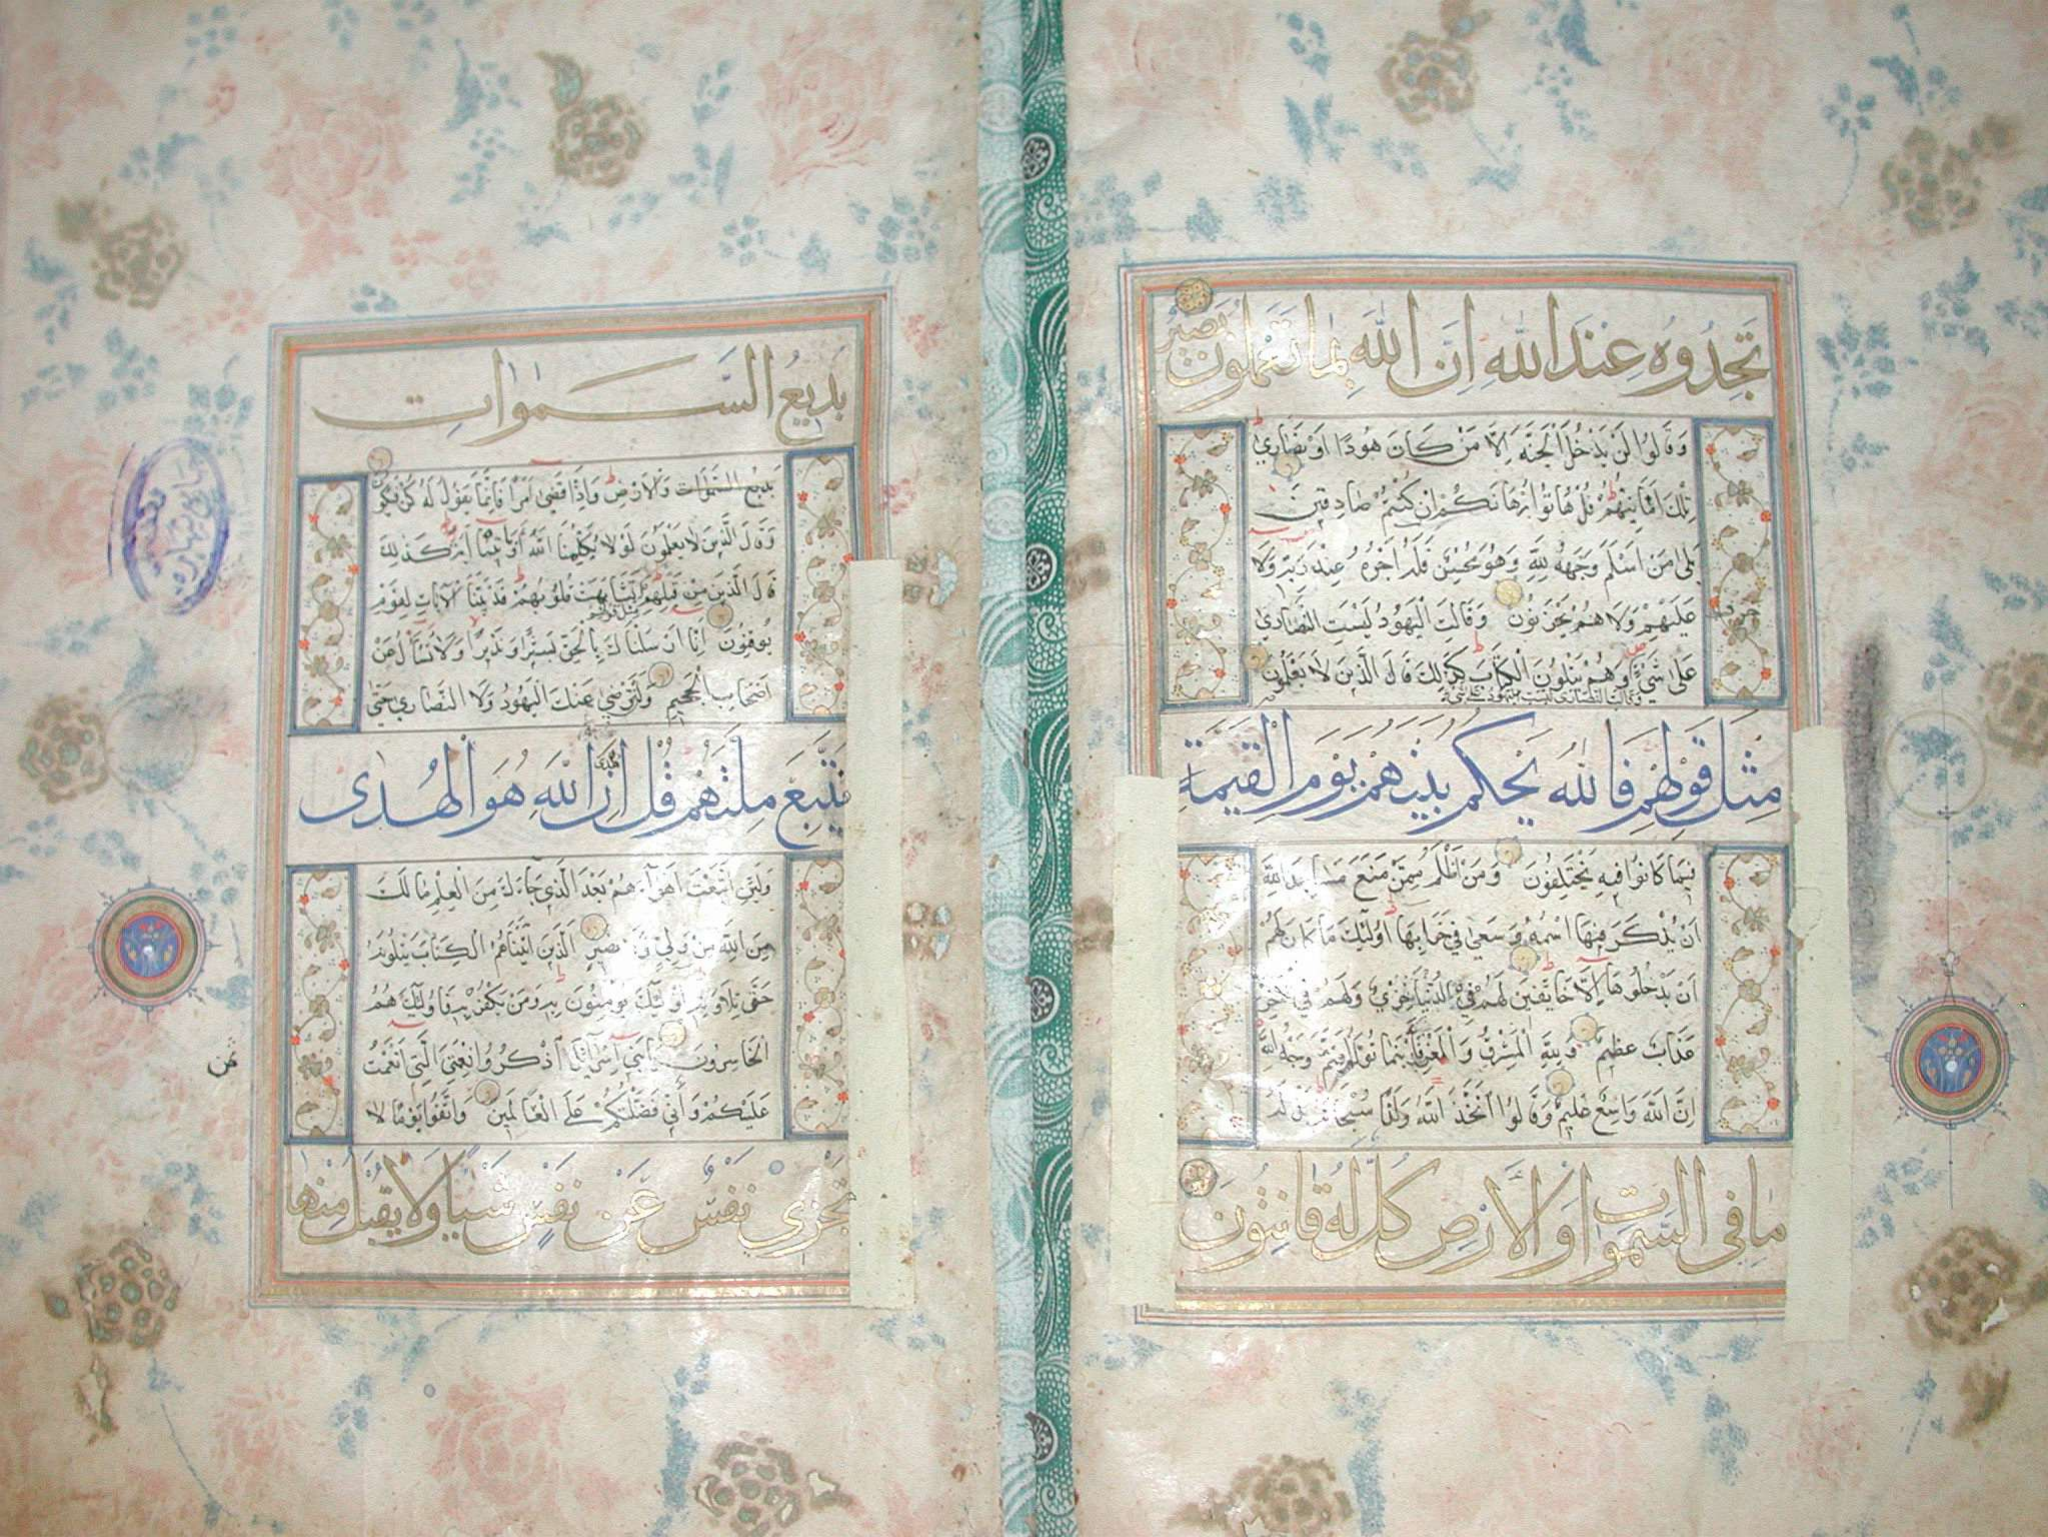 تَجِدُوهُ عِنْدَ اللهِ اِنَّ اللهَ بِمَا تَعْمَلُونَ بَصِيرٌ
وَقَالُوا لَنْ يَدْخُلَ الْجَنَّةَ اِلَّا مَنْ كَانَ هُودًا اَوْ نَصَارَىٰ
تِلْكَ اَمَانِيُّهُمْ قُلْ هَاتُوا بُرْهَانَكُمْ اِنْ كُنْتُمْ صَادِقِينَ
بَلَىٰ مَنْ اَسْلَمَ وَجْهَهُ لِلّٰهِ وَهُوَ مُحْسِنٌ فَلَهُ اَجْرُهُ عِنْدَ رَبِّهِ وَلَا خوف
عَلَيْهِمْ وَلَا هُمْ يَحْزَنُونَ وَقَالَتِ الْيَهُودُ لَيْسَتِ النَّصَارَىٰ
عَلَىٰ شَيْءٍ وَهُمْ يَتْلُونَ الْكِتَابَ كَذٰلِكَ قَالَ الَّذِينَ لَا يَعْلَمُونَ
وقالت النصارى ليست اليهود على شيء
مِثْلَ قَوْلِهِمْ فَاللهُ يَحْكُمُ بَيْنَهُمْ يَوْمَ الْقِيٰمَةِ
فِيمَا كَانُوا فِيهِ يَخْتَلِفُونَ وَمَنْ اَظْلَمُ مِمَّنْ مَنَعَ مَسَاجِدَ اللهِ
اَنْ يُذْكَرَ فِيهَا اسْمُهُ وَسَعَىٰ فِي خَرَابِهَا اُولٰئِكَ مَا كَانَ لَهُمْ
اَنْ يَدْخُلُوهَا اِلَّا خَائِفِينَ لَهُمْ فِي الدُّنْيَا خِزْيٌ وَلَهُمْ فِي الْاٰخِرَةِ
عَذَابٌ عَظِيمٌ وَلِلّٰهِ الْمَشْرِقُ وَالْمَغْرِبُ فَاَيْنَمَا تُوَلُّوا فَثَمَّ وَجْهُ اللهِ
اِنَّ اللهَ وَاسِعٌ عَلِيمٌ وَقَالُوا اتَّخَذَ اللهُ وَلَدًا سُبْحَانَهُ بَلْ لَهُ
مَا فِي السَّمٰوَاتِ وَالْاَرْضِ كُلٌّ لَهُ قَانِتُونَ
بَدِيعُ السَّمٰوَاتِ
بَدِيعُ السَّمٰوَاتِ وَالْاَرْضِ وَاِذَا قَضٰى اَمْرًا فَاِنَّمَا يَقُولُ لَهُ كُنْ فَيَكُونُ
وَقَالَ الَّذِينَ لَا يَعْلَمُونَ لَوْلَا يُكَلِّمُنَا اللهُ اَوْ تَأْتِينَا اٰيَةٌ كَذٰلِكَ
قَالَ الَّذِينَ مِنْ قَبْلِهِمْ مثل قولهم تَشَابَهَتْ قُلُوبُهُمْ قَدْ بَيَّنَّا الْاٰيَاتِ لِقَوْمٍ
يُوقِنُونَ اِنَّا اَرْسَلْنَاكَ بِالْحَقِّ بَشِيرًا وَنَذِيرًا وَلَا تُسْأَلُ عَنْ
اَصْحَابِ الْجَحِيمِ وَلَنْ تَرْضَىٰ عَنْكَ الْيَهُودُ وَلَا النَّصَارَىٰ حَتَّىٰ
تَتَّبِعَ مِلَّتَهُمْ قُلْ اِنَّ هُدَى اللهِ هُوَ الْهُدٰى
وَلَئِنِ اتَّبَعْتَ اَهْوَاءَهُمْ بَعْدَ الَّذِي جَاءَكَ مِنَ الْعِلْمِ مَا لَكَ
مِنَ اللهِ مِنْ وَلِيٍّ وَلَا نَصِيرٍ اَلَّذِينَ اٰتَيْنَاهُمُ الْكِتَابَ يَتْلُونَهُ
حَقَّ تِلَاوَتِهِ اُولٰئِكَ يُؤْمِنُونَ بِهِ وَمَنْ يَكْفُرْ بِهِ فَاُولٰئِكَ هُمُ
الْخَاسِرُونَ يَا بَنِي اِسْرَائِيلَ اذْكُرُوا نِعْمَتِيَ الَّتِي اَنْعَمْتُ
عَلَيْكُمْ وَاَنِّي فَضَّلْتُكُمْ عَلَى الْعَالَمِينَ وَاتَّقُوا يَوْمًا لَا
تَجْزِي نَفْسٌ عَنْ نَفْسٍ شَيْئًا وَلَا يُقْبَلُ مِنْهَا